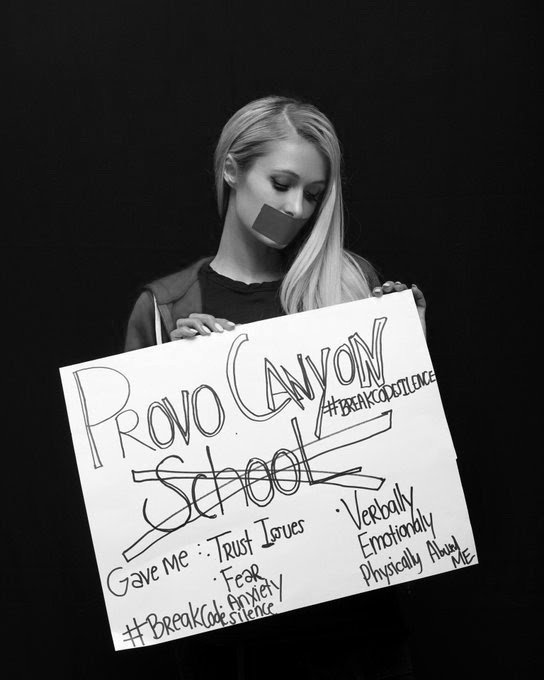 PROVO CANYON
#BREAKCODESILENCE
SCHOOL
GAVE ME : · TRUST ISSUES
· FEAR
· ANXIETY
#BREAKCODESILENCE
· VERBALLY
EMOTIONALLY
PHYSICALLY ABUSED
ME